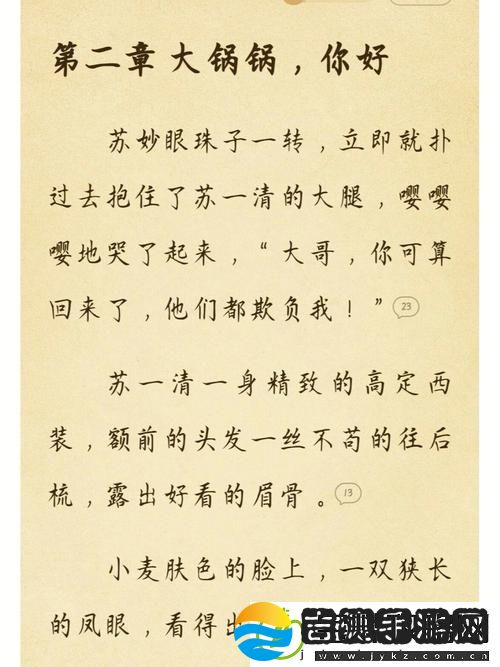 第二章 大锅锅，你好
苏妙眼珠子一转，立即就扑
过去抱住了苏一清的大腿，嘤嘤
嘤地哭了起来，“大哥，你可算
回来了，他们都欺负我！”
23
苏一清一身精致的高定西
装，额前的头发一丝不苟的往后
梳，露出好看的眉骨。
13
小麦肤色的脸上，一双狭长
的凤眼，看得出
游网
www.jykz.com.cn